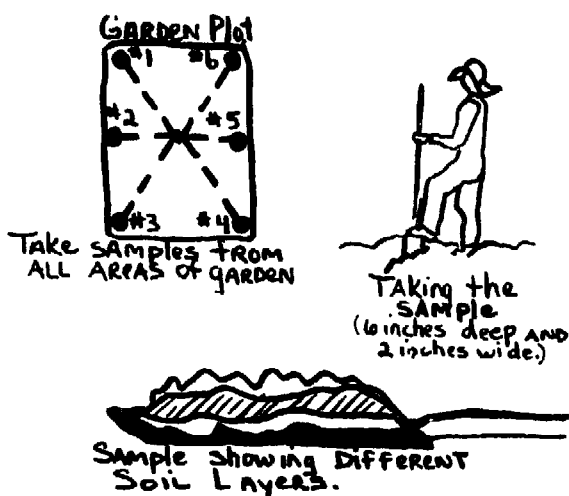 GARDEN Plot
#1 #6
#2 #5
#3 #4
TAKE SAMPLES FROM
ALL AREAS of GARDEN
TAKING the
SAMPLE
(6 inches deep AND
2 inches wide.)
SAMPLE Showing DIFFERENT
Soil LAYERS.